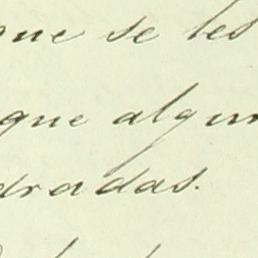 que se les
que algun
dradas.